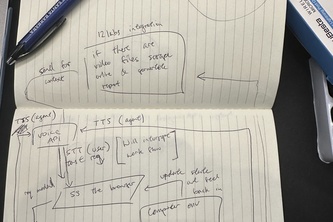 12labs integration
if there are
video files scrape
online & generate
report
send for
TTS (agent)
TTS (agent)
VOICE
API
STT (user)
[Will interrupt
work flow]
SS the browser
update state
back in
Computer use